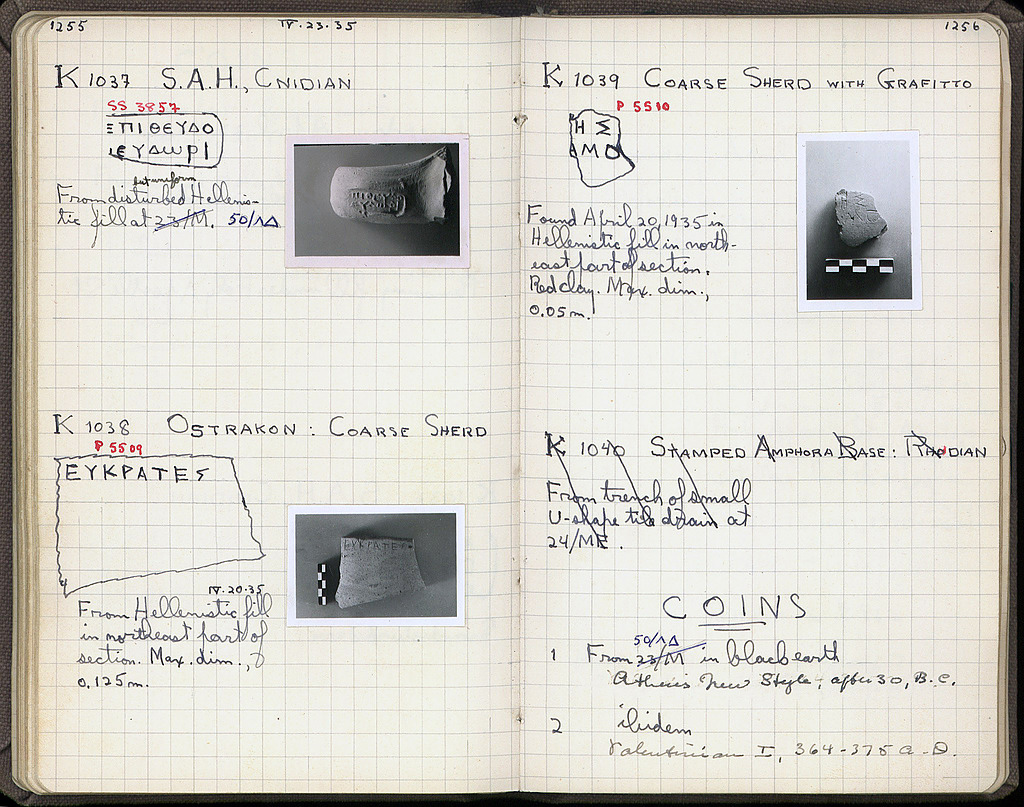 1255
IV.23.35
K 1037 S.A.H., CNIDIAN
SS 3857
ΞΠΙΘΕΥΔΟ
ΙΕΥΔωΡΙ
but uniform
From disturbed Hellenis-
tic fill at 23/M. 50/ΛΔ
K 1038 OSTRAKON: COARSE SHERD
P 5509
ΕΥΚΡΑΤΕς
IV.20.35
From Hellenistic fill
in northeast part of
section. Max. dim.,
0.125 m.
1256
K 1039 COARSE SHERD WITH GRAFITTO
P 5510
Η Σ
ΑΜΟ
Found April 20, 1935 in
Hellenistic fill in north-
east part of section.
Red clay. Max. dim.,
0.05 m.
K 1040 STAMPED AMPHORA BASE: RHODIAN
From trench of small
U-shape tile drain at
24/ME.
COINS
50/ΛΔ
1 From 23/M in black earth
Athens New Style, after 30, B.C.
2 ibidem
Valentinian I, 364-375 A.D.